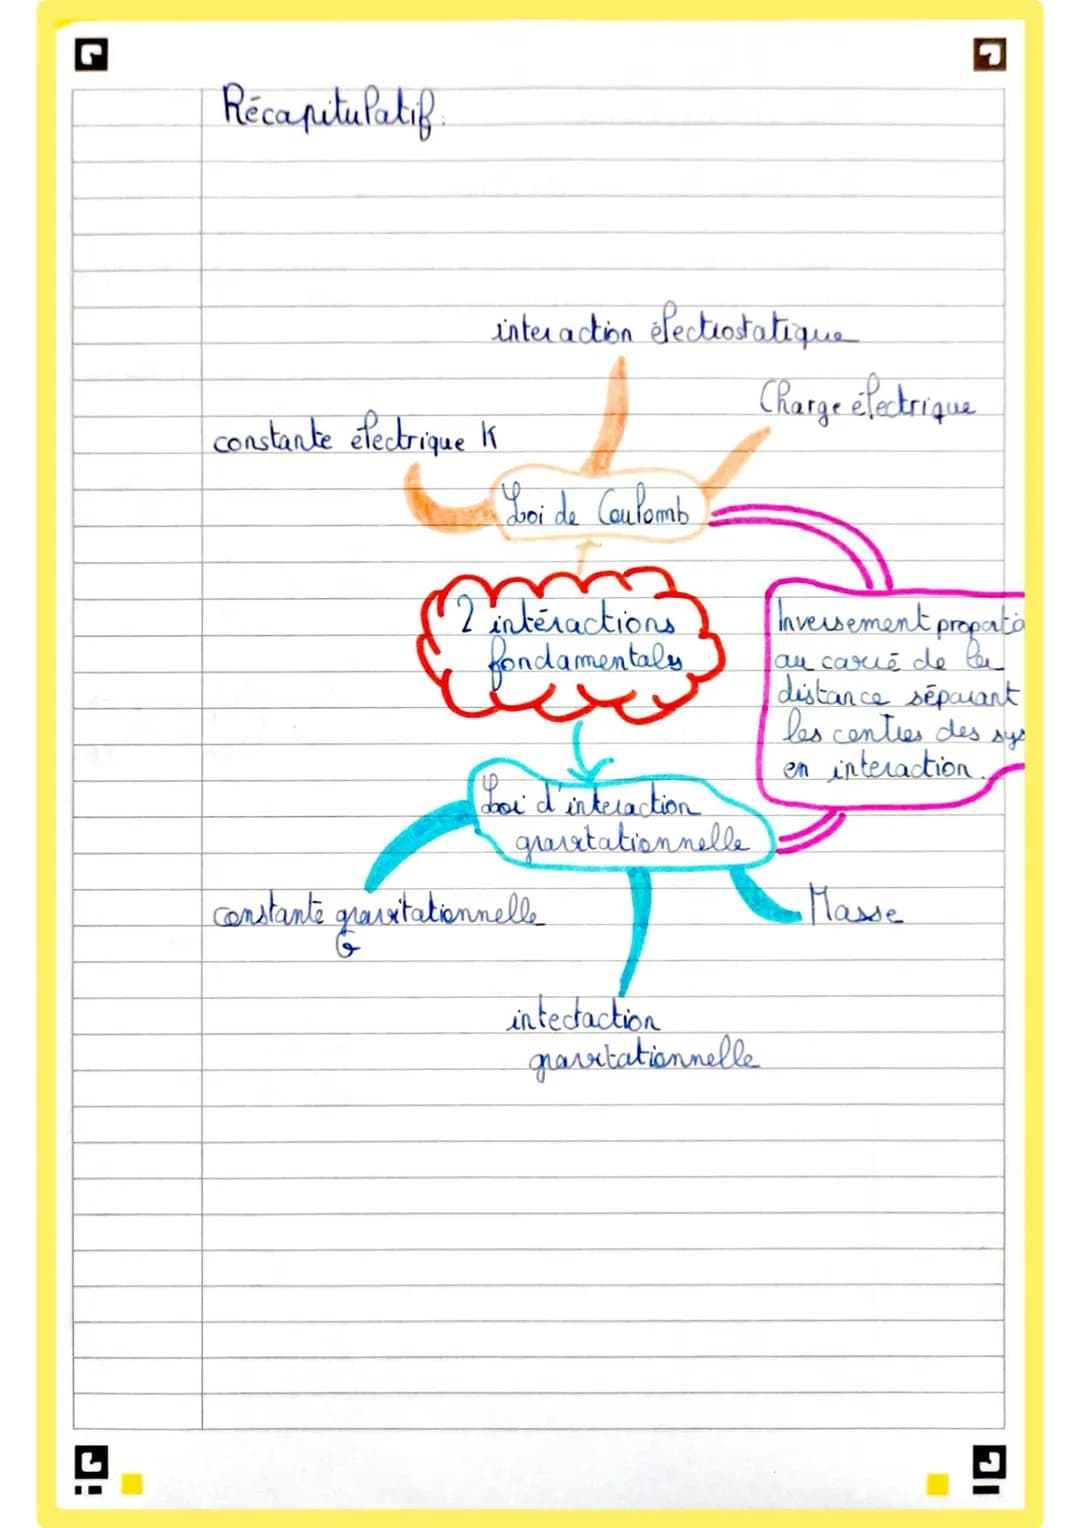 Récapitulatif:
interaction électrostatique
Charge électrique
constante électrique K
Loi de Coulomb
2 intéractions
fondamentales
Inversement proportio
au carré de la
distance séparant
les centres des sys
en interaction.
Loi d'interaction
gravitationnelle
constante gravitationnelle
G
Masse
intectaction
gravitationnelle